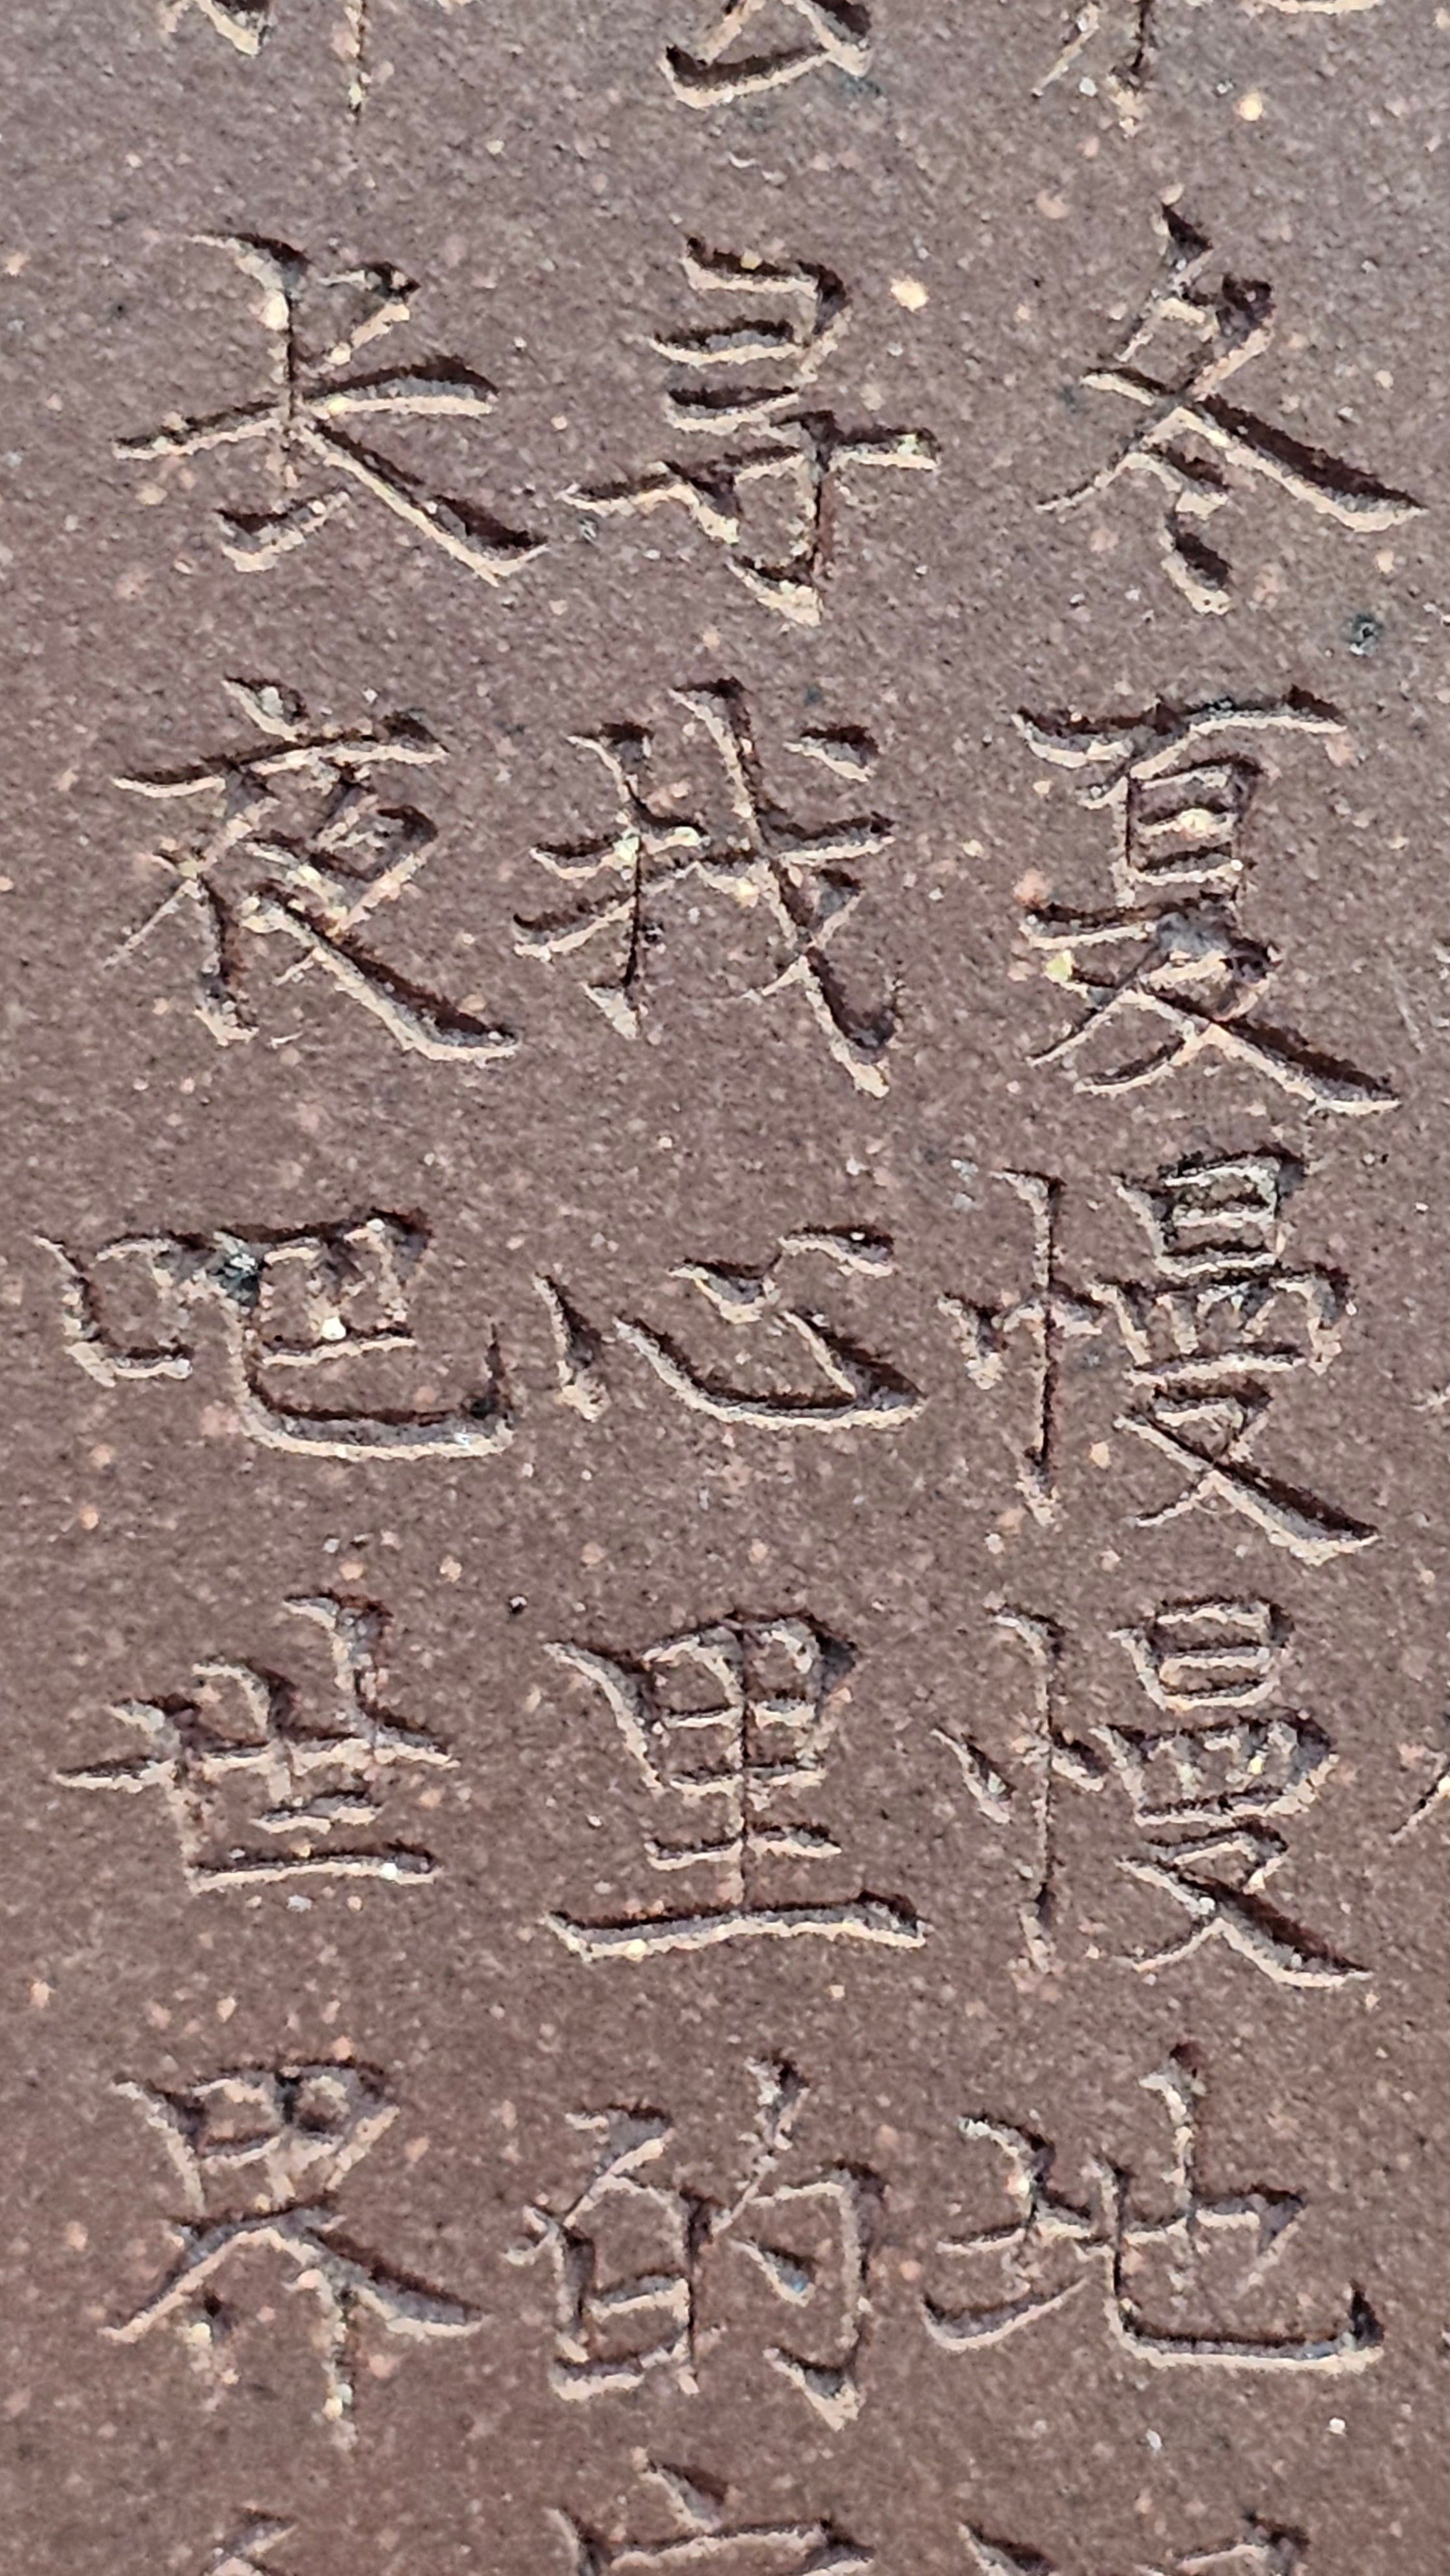 冬夏慢慢地
寻我心里的
长夜吧世界